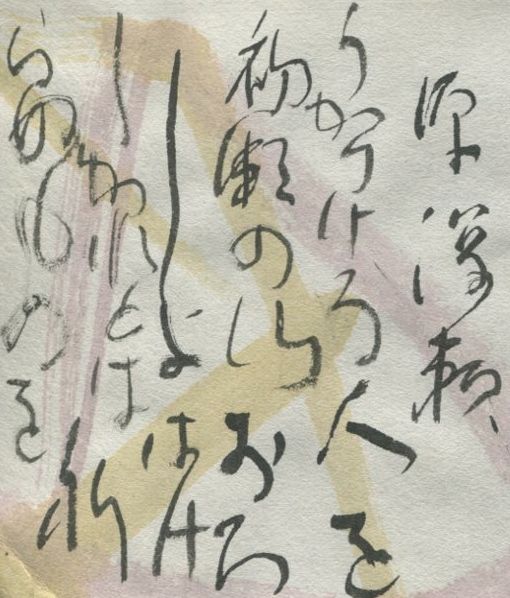 源俊頼
うかりける人を
初瀬の山おろ
しよはけ
しかれとは祈
らぬものを